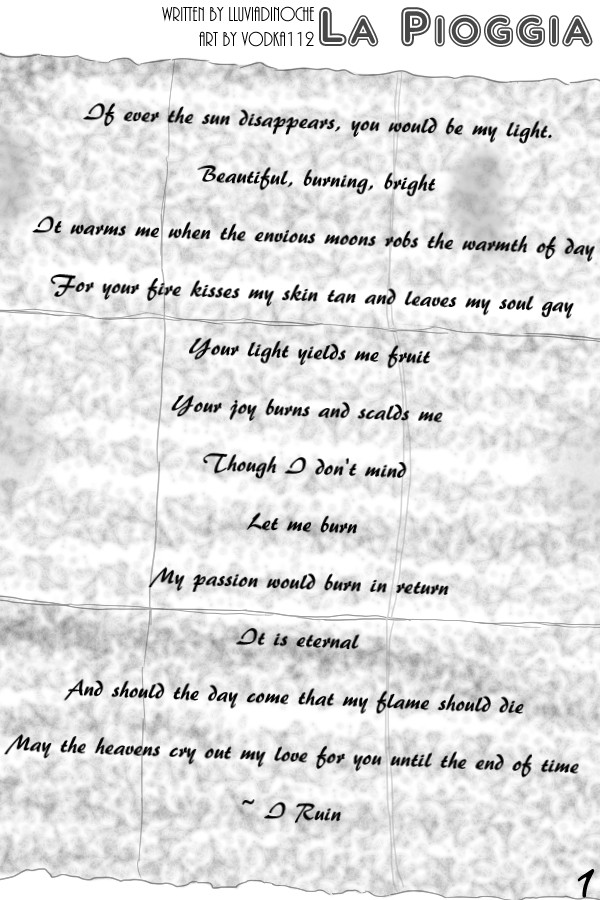 WRITTEN BY LLUVIADINOCHE
ART BY VODKA112
LA PIOGGIA
If ever the sun disappears, you would be my light.
Beautiful, burning, bright
It warms me when the envious moons robs the warmth of day
For your fire kisses my skin tan and leaves my soul gay
Your light yields me fruit
Your joy burns and scalds me
Though I don't mind
Let me burn
My passion would burn in return
It is eternal
And should the day come that my flame should die
May the heavens cry out my love for you until the end of time
~ I Ruin
1